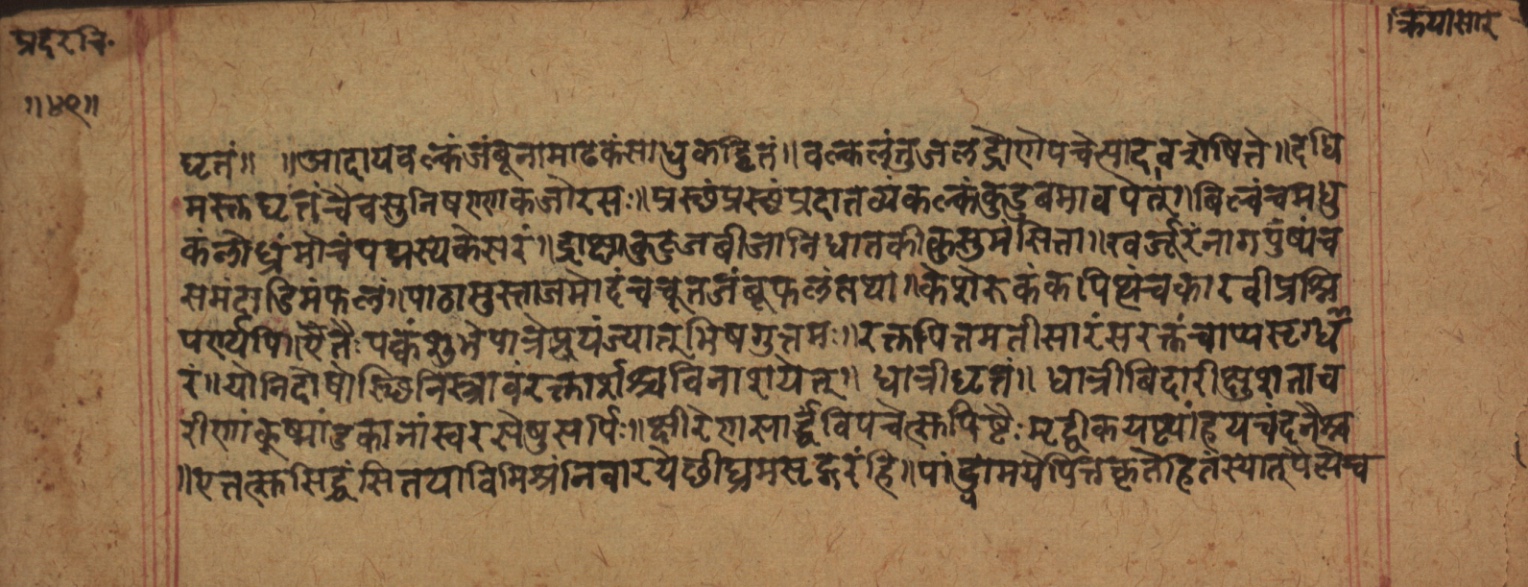 प्रदरचि॰
॥४९॥
क्रियासार
घृतं॥ ॥आदायवल्कंजंबूनामाढकंसाधुकट्टितं॥वल्कलंतुजलद्रोणेपचेत्पादवशेषिते॥दधि
मस्तघृतंचैवसुनिषण्णकजोरसः॥प्रस्थंप्रस्थंप्रदातव्यंकल्कंकुडवमावपेत्॥बिल्वंचमधु
कंलोध्रंमोचंपद्मस्यकेसरं॥द्राक्षाकुटजबीजानिधातकीकुसुमंसिता॥खर्जूरंनागपुष्पंच
समंदाडिमंफलं॥पाठामुस्ताजमोदंचचूतजंबूफलंतथा॥केशेरुकंकपित्थंचकारवीप्रश्नि
पर्ण्यपि॥एतैःपक्वंशुभेपात्रेप्रयंज्यातभिषगुत्तमः॥रक्तपित्तमतीसारंसरक्तंचाप्यसृग्ध
रं॥योनिदोषांस्छिनिस्त्रावंरक्तार्शाश्चविनाशयेत्॥ धात्रीघृतं॥ धात्रीबिदारीक्षुशताच
रीणांकुष्मांडकानांस्वरसेषुसर्पिः॥क्षीरेणसार्द्धंविपचेत्सपिष्टैःमृद्वीकयष्ट्यांहयचंदनैश्च
॥एतत्ससिद्धंसितयाविमिश्रंनिवारयेछीघ्रमसृग्दरंहि॥पांड्वामयेपित्तकृतेहितंस्यात्पैत्येच